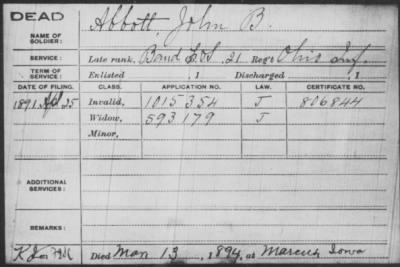 DEAD
NAME OF SOLDIER: Abbott, John B.
SERVICE: Late rank, Band F&S, 21 Reg't Ohio Inf.
TERM OF SERVICE: Enlisted , 1 Discharged , 1
DATE OF FILING. CLASS. APPLICATION NO. LAW. CERTIFICATE NO.
1891 Apl 25 Invalid, 1015354 J 806844
Widow, 593179 J
Minor,
ADDITIONAL SERVICES:
REMARKS:
Died Mar 13, 1894, at Marcus Iowa